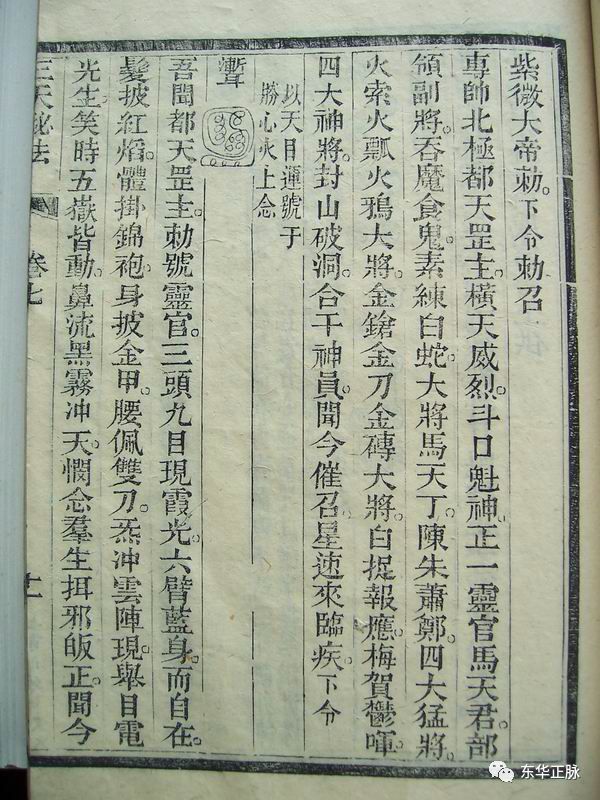 紫微大帝勅。下令勅召
專師北極都天罡主。橫天威烈。斗口魁神。正一靈官馬天君。部
領副將。吞魔食鬼素練白蛇。大將馬天丁。陳朱蕭鄭。四大猛將
火索火瓢火鴉大將。金鎗金刀金磚大將。白捉報應。梅賀鬱暉
四大神將。封山破洞。合干神員。聞今催召。星速來臨。疾。下令
以天目運號于
勝心火上念
吾聞都天罡主。勅號靈官。三頭九目現霞光。六臂藍身而自在。
髮披紅焰。體掛錦袍。身披金甲。腰佩雙刀。炁冲雲陣現。舉目電
光生。笑時五嶽皆動。鼻流黑霧冲天。憫念羣生。挕邪皈正。聞今
三天秘法
卷七
十一
东华正脉